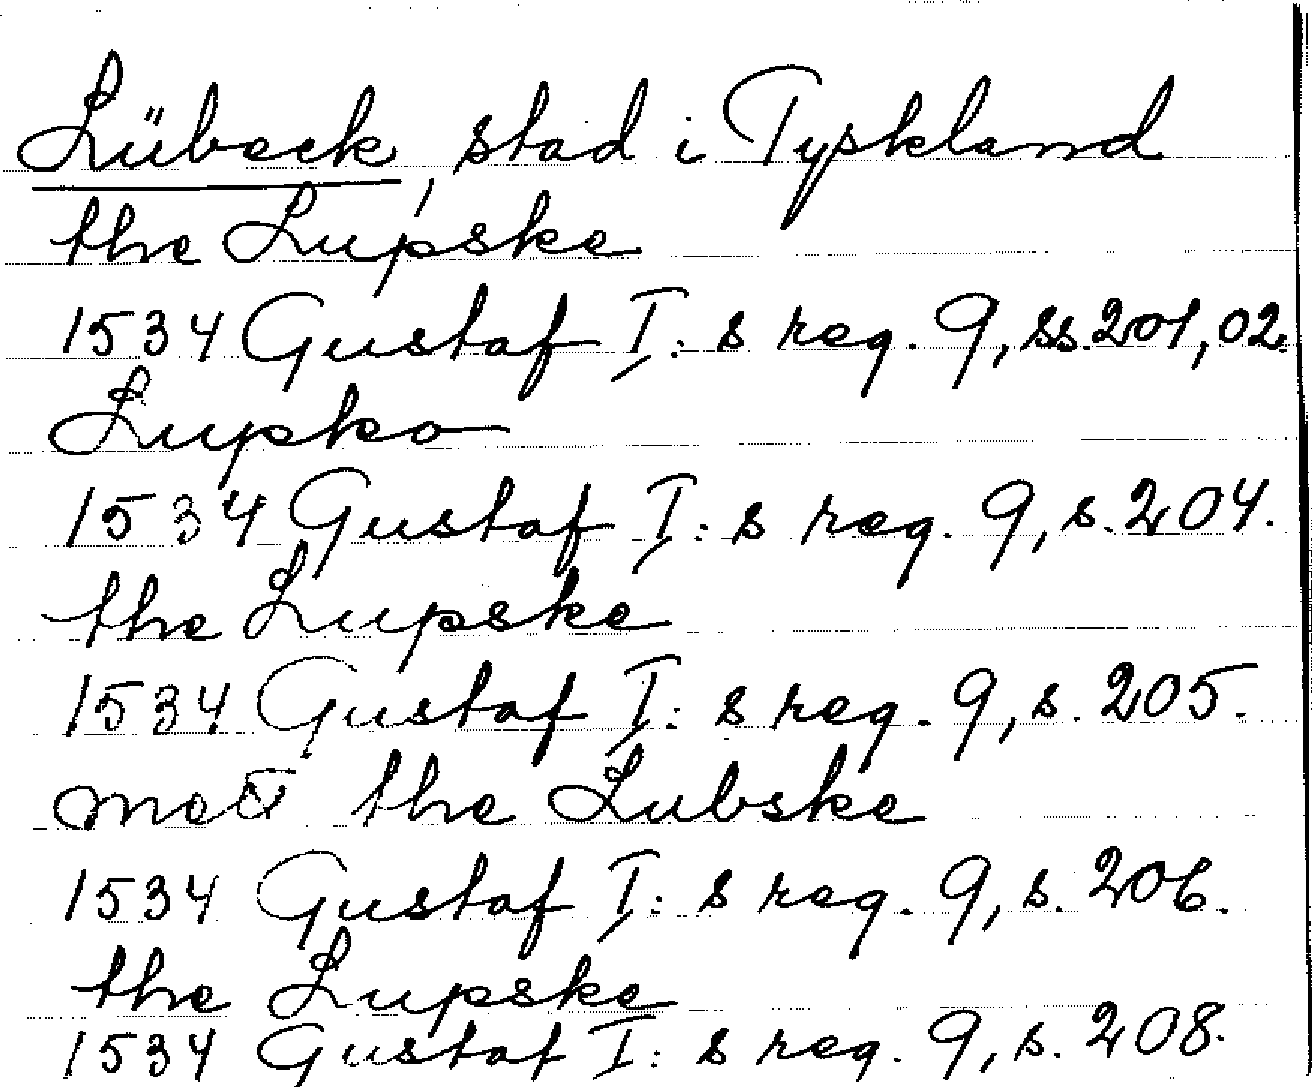 Lübeck, stad i Tyskland
the Lupske
1534 Gustaf I: s reg. 9, ss. 201, 02.
Lupsko
1534 Gustaf I: s reg. 9, s. 204.
the Lupske
1534 Gustaf I: s reg. 9, s. 205.
the Lubske
1534 Gustaf I: s reg. 9, s. 206.
the Lupske
1534 Gustaf I: s reg. 9, s. 208.